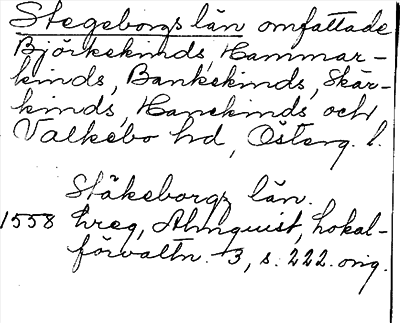 Stegeborgs län omfattade
Björkekinds, Hammar-
kinds, Bankekinds, Skär-
kinds, Hanekinds och
Valkebo hd, Österg. l.
Stäkeborgs län.
1558 hreg, Almquist, Lokal-
förvaltn. 3, s. 222. orig.